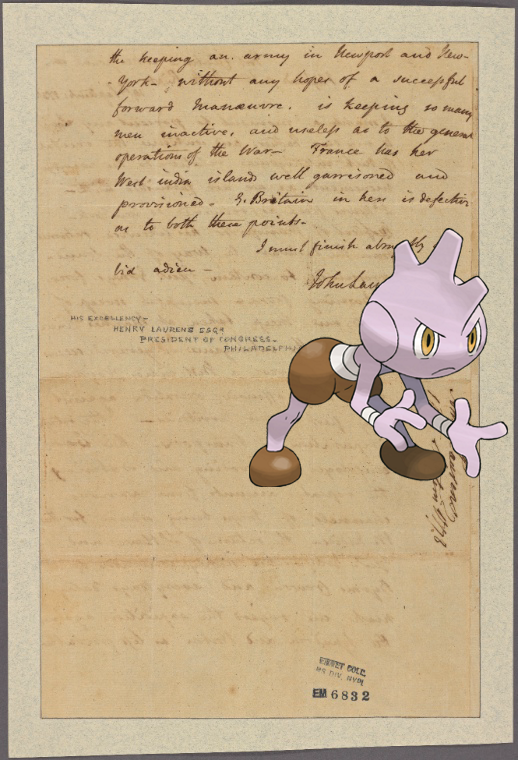 the keeping an army in Newport and New-
York - without any hopes of a successful
forward manœuvre. is keeping so many
men inactive, and useless as to the general
operations of the War - France has her
West india islands well garrisoned and
provisioned - G. Britain in hers is defective
as to both these points.
I must finish
bid adieu -
John
HIS EXCELLENCY -
HENRY LAURENS ESQR
PRESIDENT OF CONGRESS -
PHILADELPHIA
EMMET COLL.
MS. DIV. NYPL
EM 6832